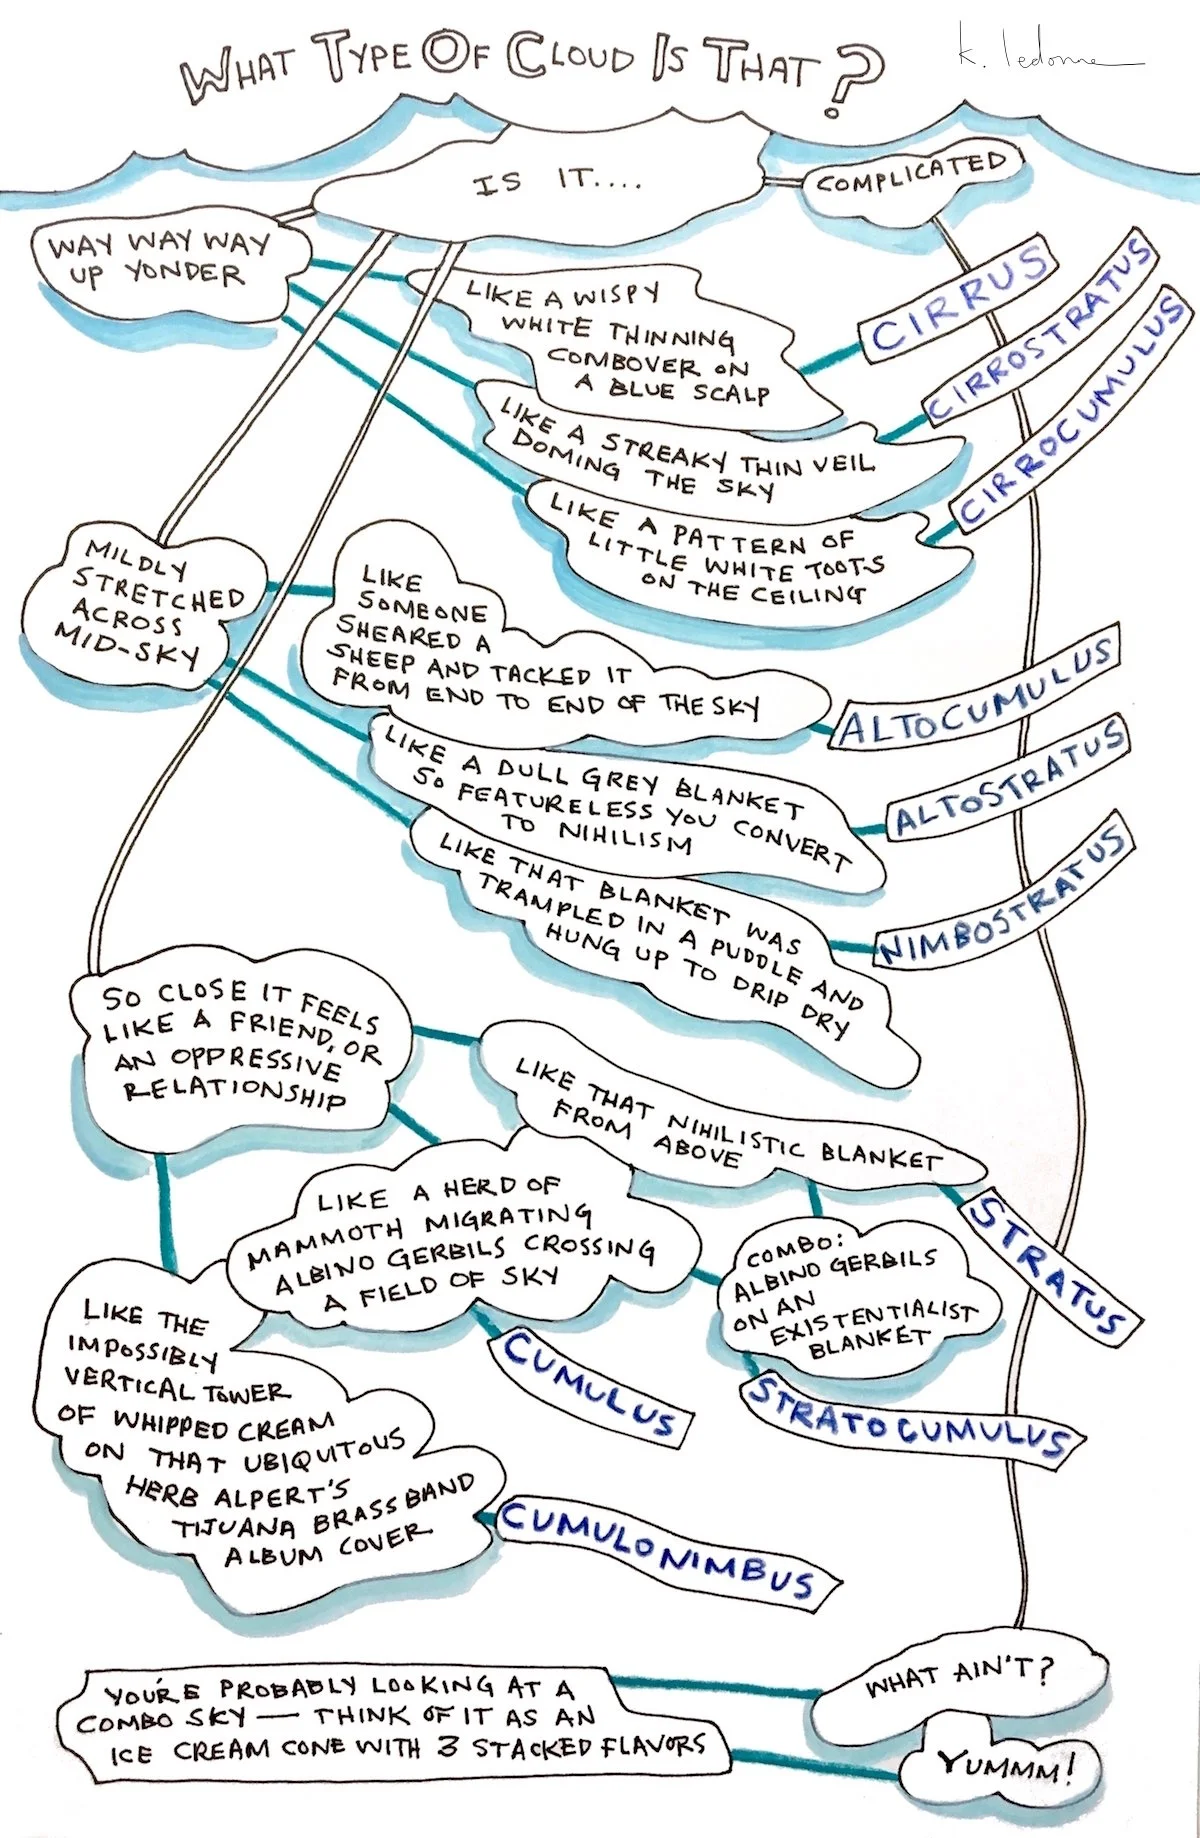 WHAT TYPE OF CLOUD IS THAT?
k. ledonne
IS IT....
COMPLICATED
WAY WAY WAY
UP YONDER
LIKE A WISPY
WHITE THINNING
COMBOVER ON
A BLUE SCALP
CIRRUS
LIKE A STREAKY THIN VEIL
DOMING THE SKY
CIRROSTRATUS
LIKE A PATTERN OF
LITTLE WHITE TOOTS
ON THE CEILING
CIRROCUMULUS
MILDLY
STRETCHED
ACROSS
MID-SKY
LIKE
SOMEONE
SHEARED A
SHEEP AND TACKED IT
FROM END TO END OF THE SKY
ALTOCUMULUS
LIKE A DULL GREY BLANKET
SO FEATURELESS YOU CONVERT
TO NIHILISM
ALTOSTRATUS
LIKE THAT BLANKET WAS
TRAMPLED IN A PUDDLE AND
HUNG UP TO DRIP DRY
NIMBOSTRATUS
SO CLOSE IT FEELS
LIKE A FRIEND, OR
AN OPPRESSIVE
RELATIONSHIP
LIKE THAT NIHILISTIC BLANKET
FROM ABOVE
STRATUS
LIKE A HERD OF
MAMMOTH MIGRATING
ALBINO GERBILS CROSSING
A FIELD OF SKY
CUMULUS
COMBO:
ALBINO GERBILS
ON AN
EXISTENTIALIST
BLANKET
STRATOCUMULUS
LIKE THE
IMPOSSIBLY
VERTICAL TOWER
OF WHIPPED CREAM
ON THAT UBIQUITOUS
HERB ALPERT'S
TIJUANA BRASS BAND
ALBUM COVER
CUMULONIMBUS
WHAT AIN'T?
YOU'RE PROBABLY LOOKING AT A
COMBO SKY — THINK OF IT AS AN
ICE CREAM CONE WITH 3 STACKED FLAVORS
YUMMM!